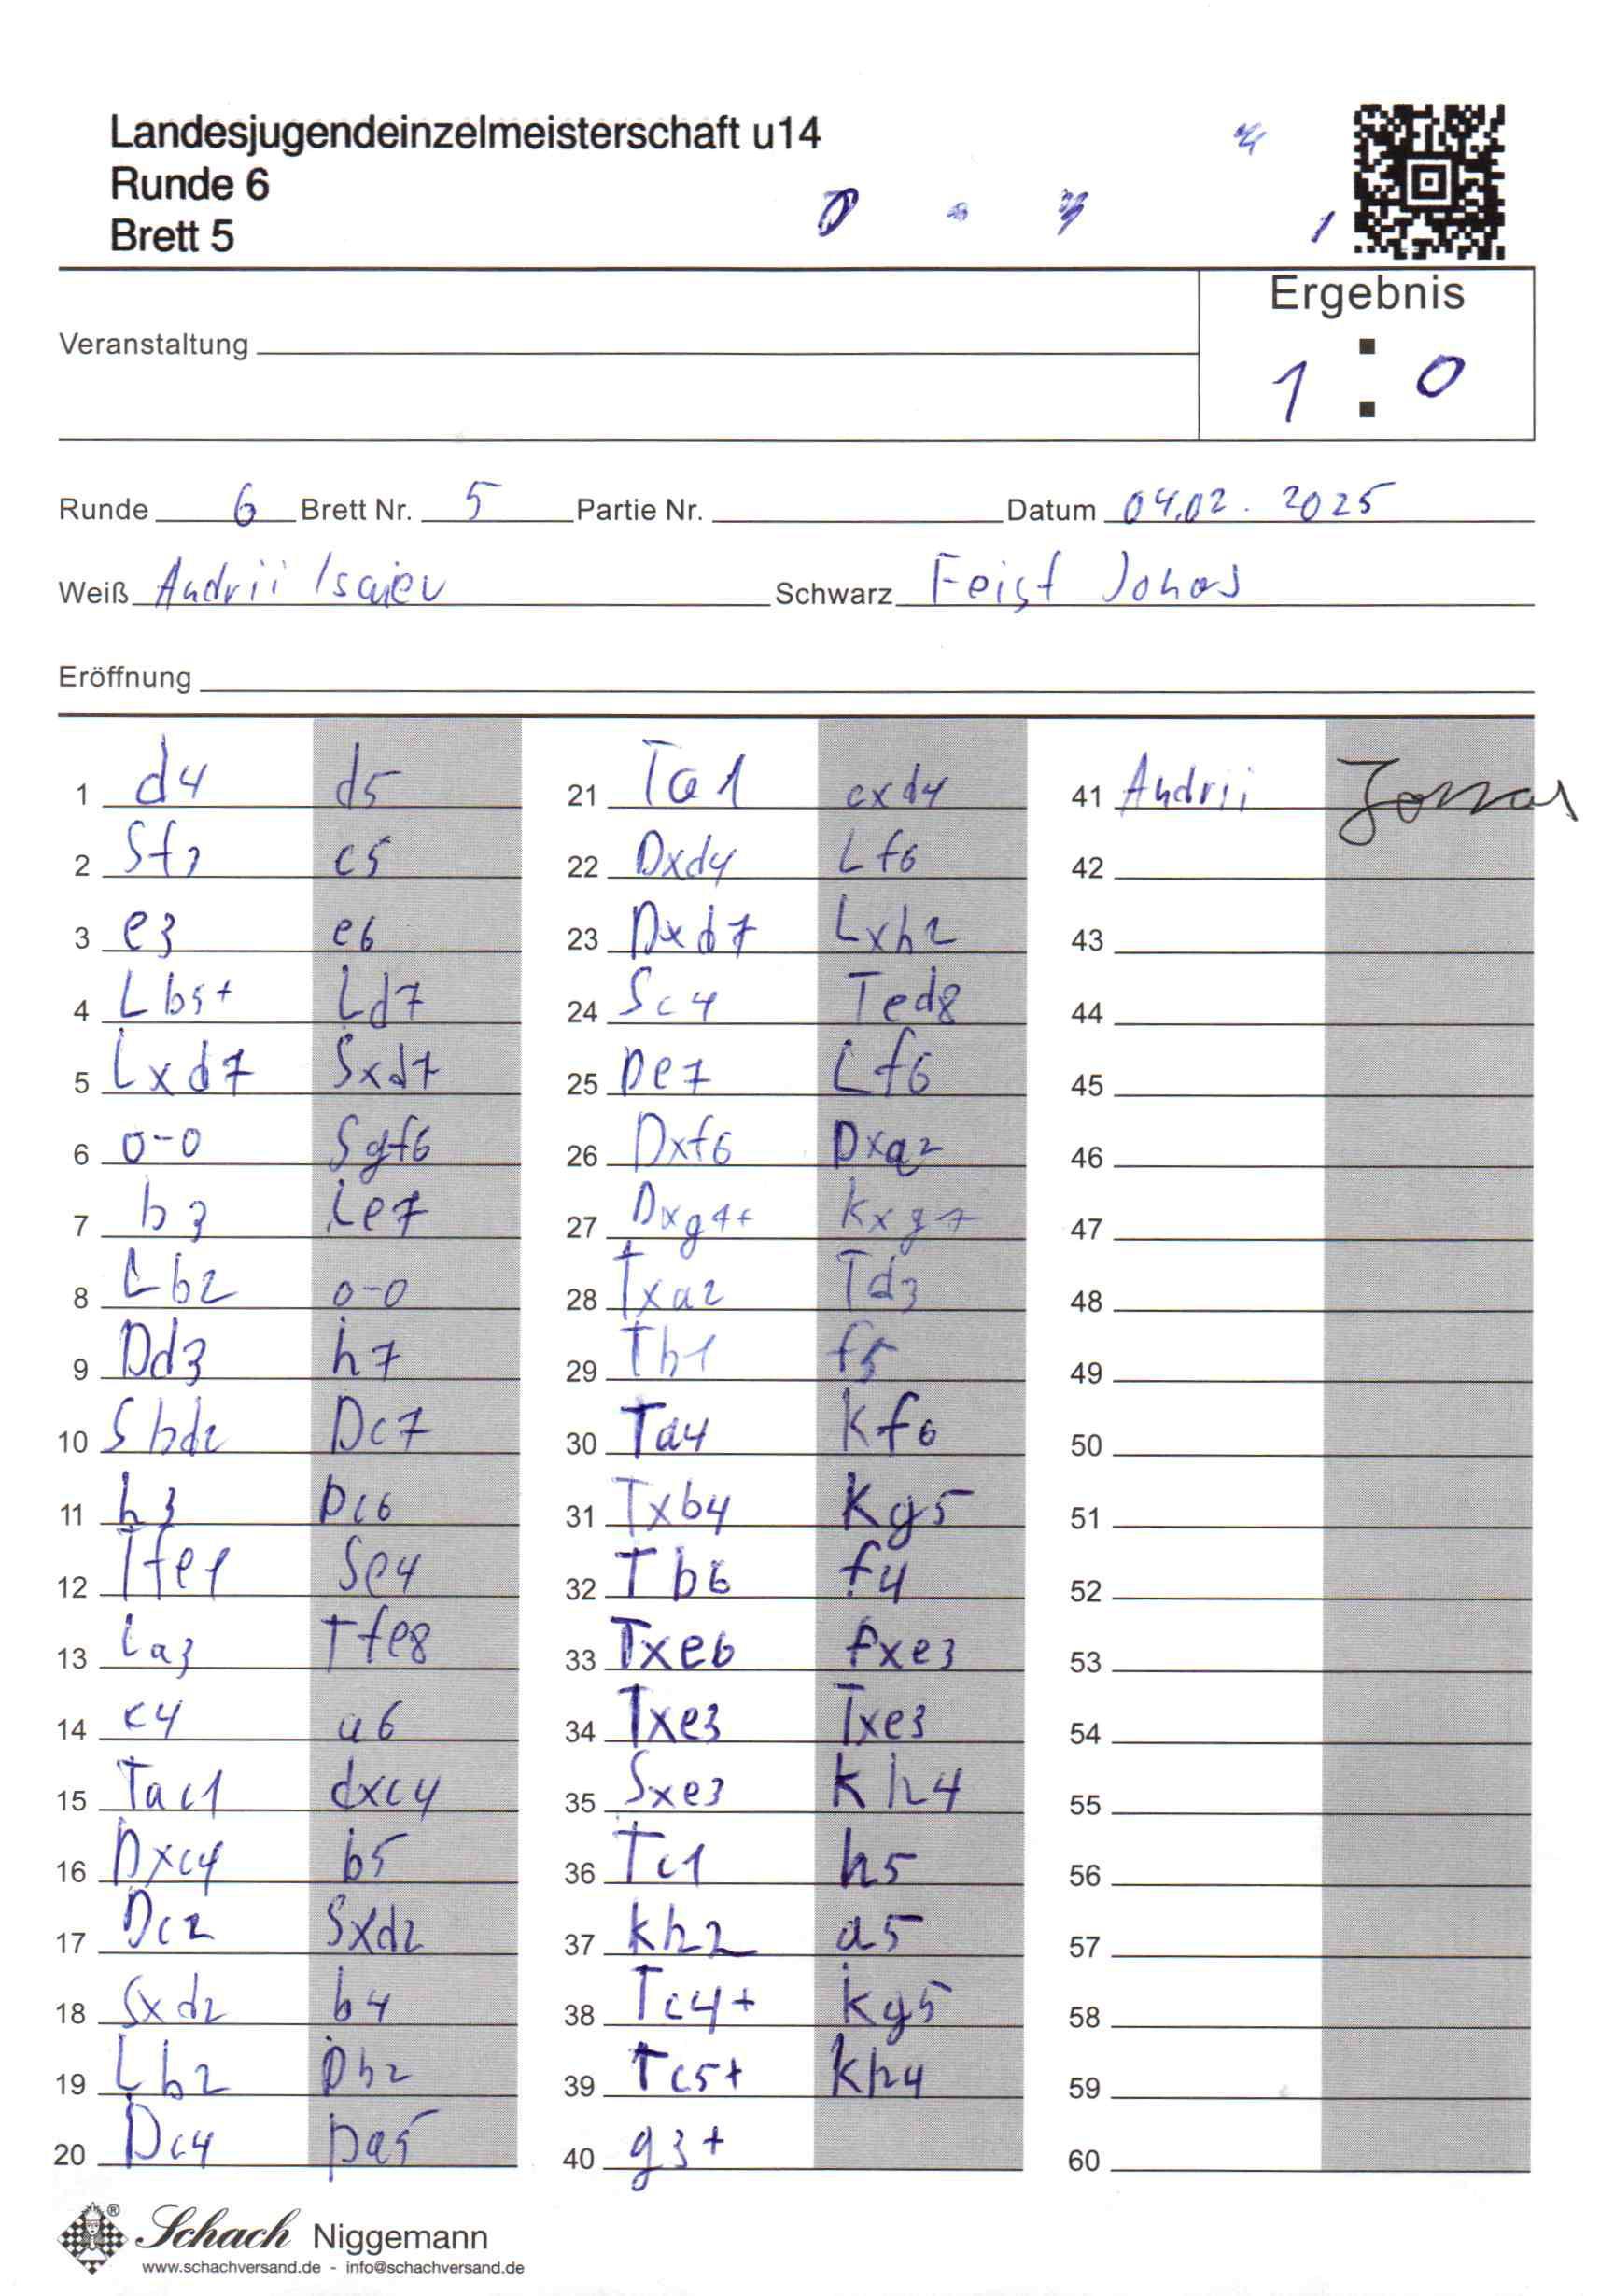 Landesjugendeinzelmeisterschaft u14
Runde 6
Brett 5
Ergebnis
Veranstaltung
1 : 0
Runde 6 Brett Nr. 5 Partie Nr. Datum 04.02.2025
Weiß Andrii Isaiev Schwarz Feist Jonas
Eröffnung
1 d4 d5
2 Sf3 c5
3 e3 e6
4 Lb5+ Ld7
5 Lxd7 Sxd7
6 0-0 Sgf6
7 b3 Le7
8 Lb2 0-0
9 Dd3 h7
10 Sbd2 Dc7
11 h3 Dc6
12 Tfe1 Se4
13 La3 Tfe8
14 c4 a6
15 Tac1 dxc4
16 Dxc4 b5
17 Dc2 Sxd2
18 Sxd2 b4
19 Lb2 Db2
20 Dc4 Da5
21 Ta1 cxd4
22 Dxd4 Lf6
23 Dxd7 Lxb2
24 Sc4 Ted8
25 De7 Lf6
26 Dxf6 Dxa2
27 Dxg7+ Kxg7
28 Txa2 Td3
29 Tb1 f5
30 Ta4 Kf6
31 Txb4 Kg5
32 Tb6 f4
33 Txe6 fxe3
34 Txe3 Txe3
35 Sxe3 Kh4
36 Tc1 h5
37 Kh2 a5
38 Tc4+ Kg5
39 Tc5+ Kh4
40 g3+
41 Andrii Jonas
42
43
44
45
46
47
48
49
50
51
52
53
54
55
56
57
58
59
60
Schach Niggemann
www.schachversand.de - info@schachversand.de